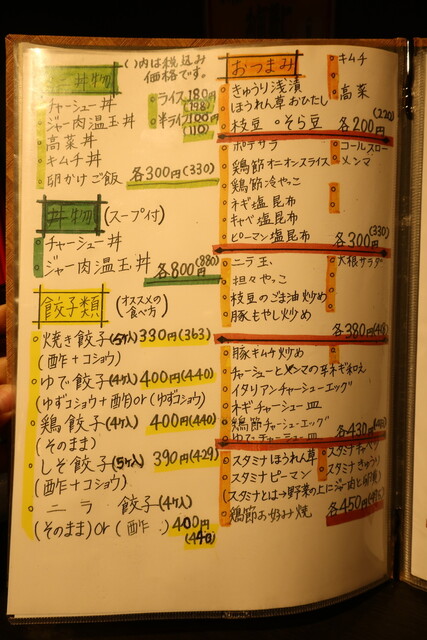 丼物
( )内は税込み
価格です。
チャーシュー丼
ジャー肉温玉丼
高菜丼
キムチ丼
卵かけご飯
ライス180円
(198)
半ライス100円
(110)
各300円(330)
丼物 (スープ付)
チャーシュー丼
ジャー肉温玉丼
各800円(880)
餃子類 (オススメの
食べ方)
焼き餃子(5ケ入) 330円(363)
(酢+コショウ)
ゆで餃子(4ケ入) 400円(440)
(ゆずコショウ+酢)or(ゆずコショウ)
鶏餃子(4ケ入) 400円(440)
(そのまま)
しそ餃子(5ケ入) 390円(429)
(酢+コショウ)
ニラ 餃子(4ケ入)
(そのまま)or(酢 ) 400円
(440)
おつまみ
キムチ
高菜
きゅうり浅漬
ほうれん草おひたし
枝豆 そら豆
各200円(220)
ポテサラ
コールスロー
鶏節オニオンスライス
メンマ
鶏節冷やっこ
ネギ塩昆布
キャベ塩昆布
ピーマン塩昆布
各300円(330)
ニラ玉
大根サラダ
坦々やっこ
枝豆のごま油炒め
豚もやし炒め
各380円(418)
豚キムチ炒め
チャーシューとメンマの辛ネギ和え
イタリアンチャーシューエッグ
ネギチャーシュー皿
鶏節チャーシューエッグ
ゆでチャーシュー皿
各430円
スタミナほうれん草
スタミナキャベツ
スタミナピーマン
スタミナきゅうり
(スタミナとは→野菜の上にジャー肉と卵黄)
鶏節お好み焼
各450円(495)